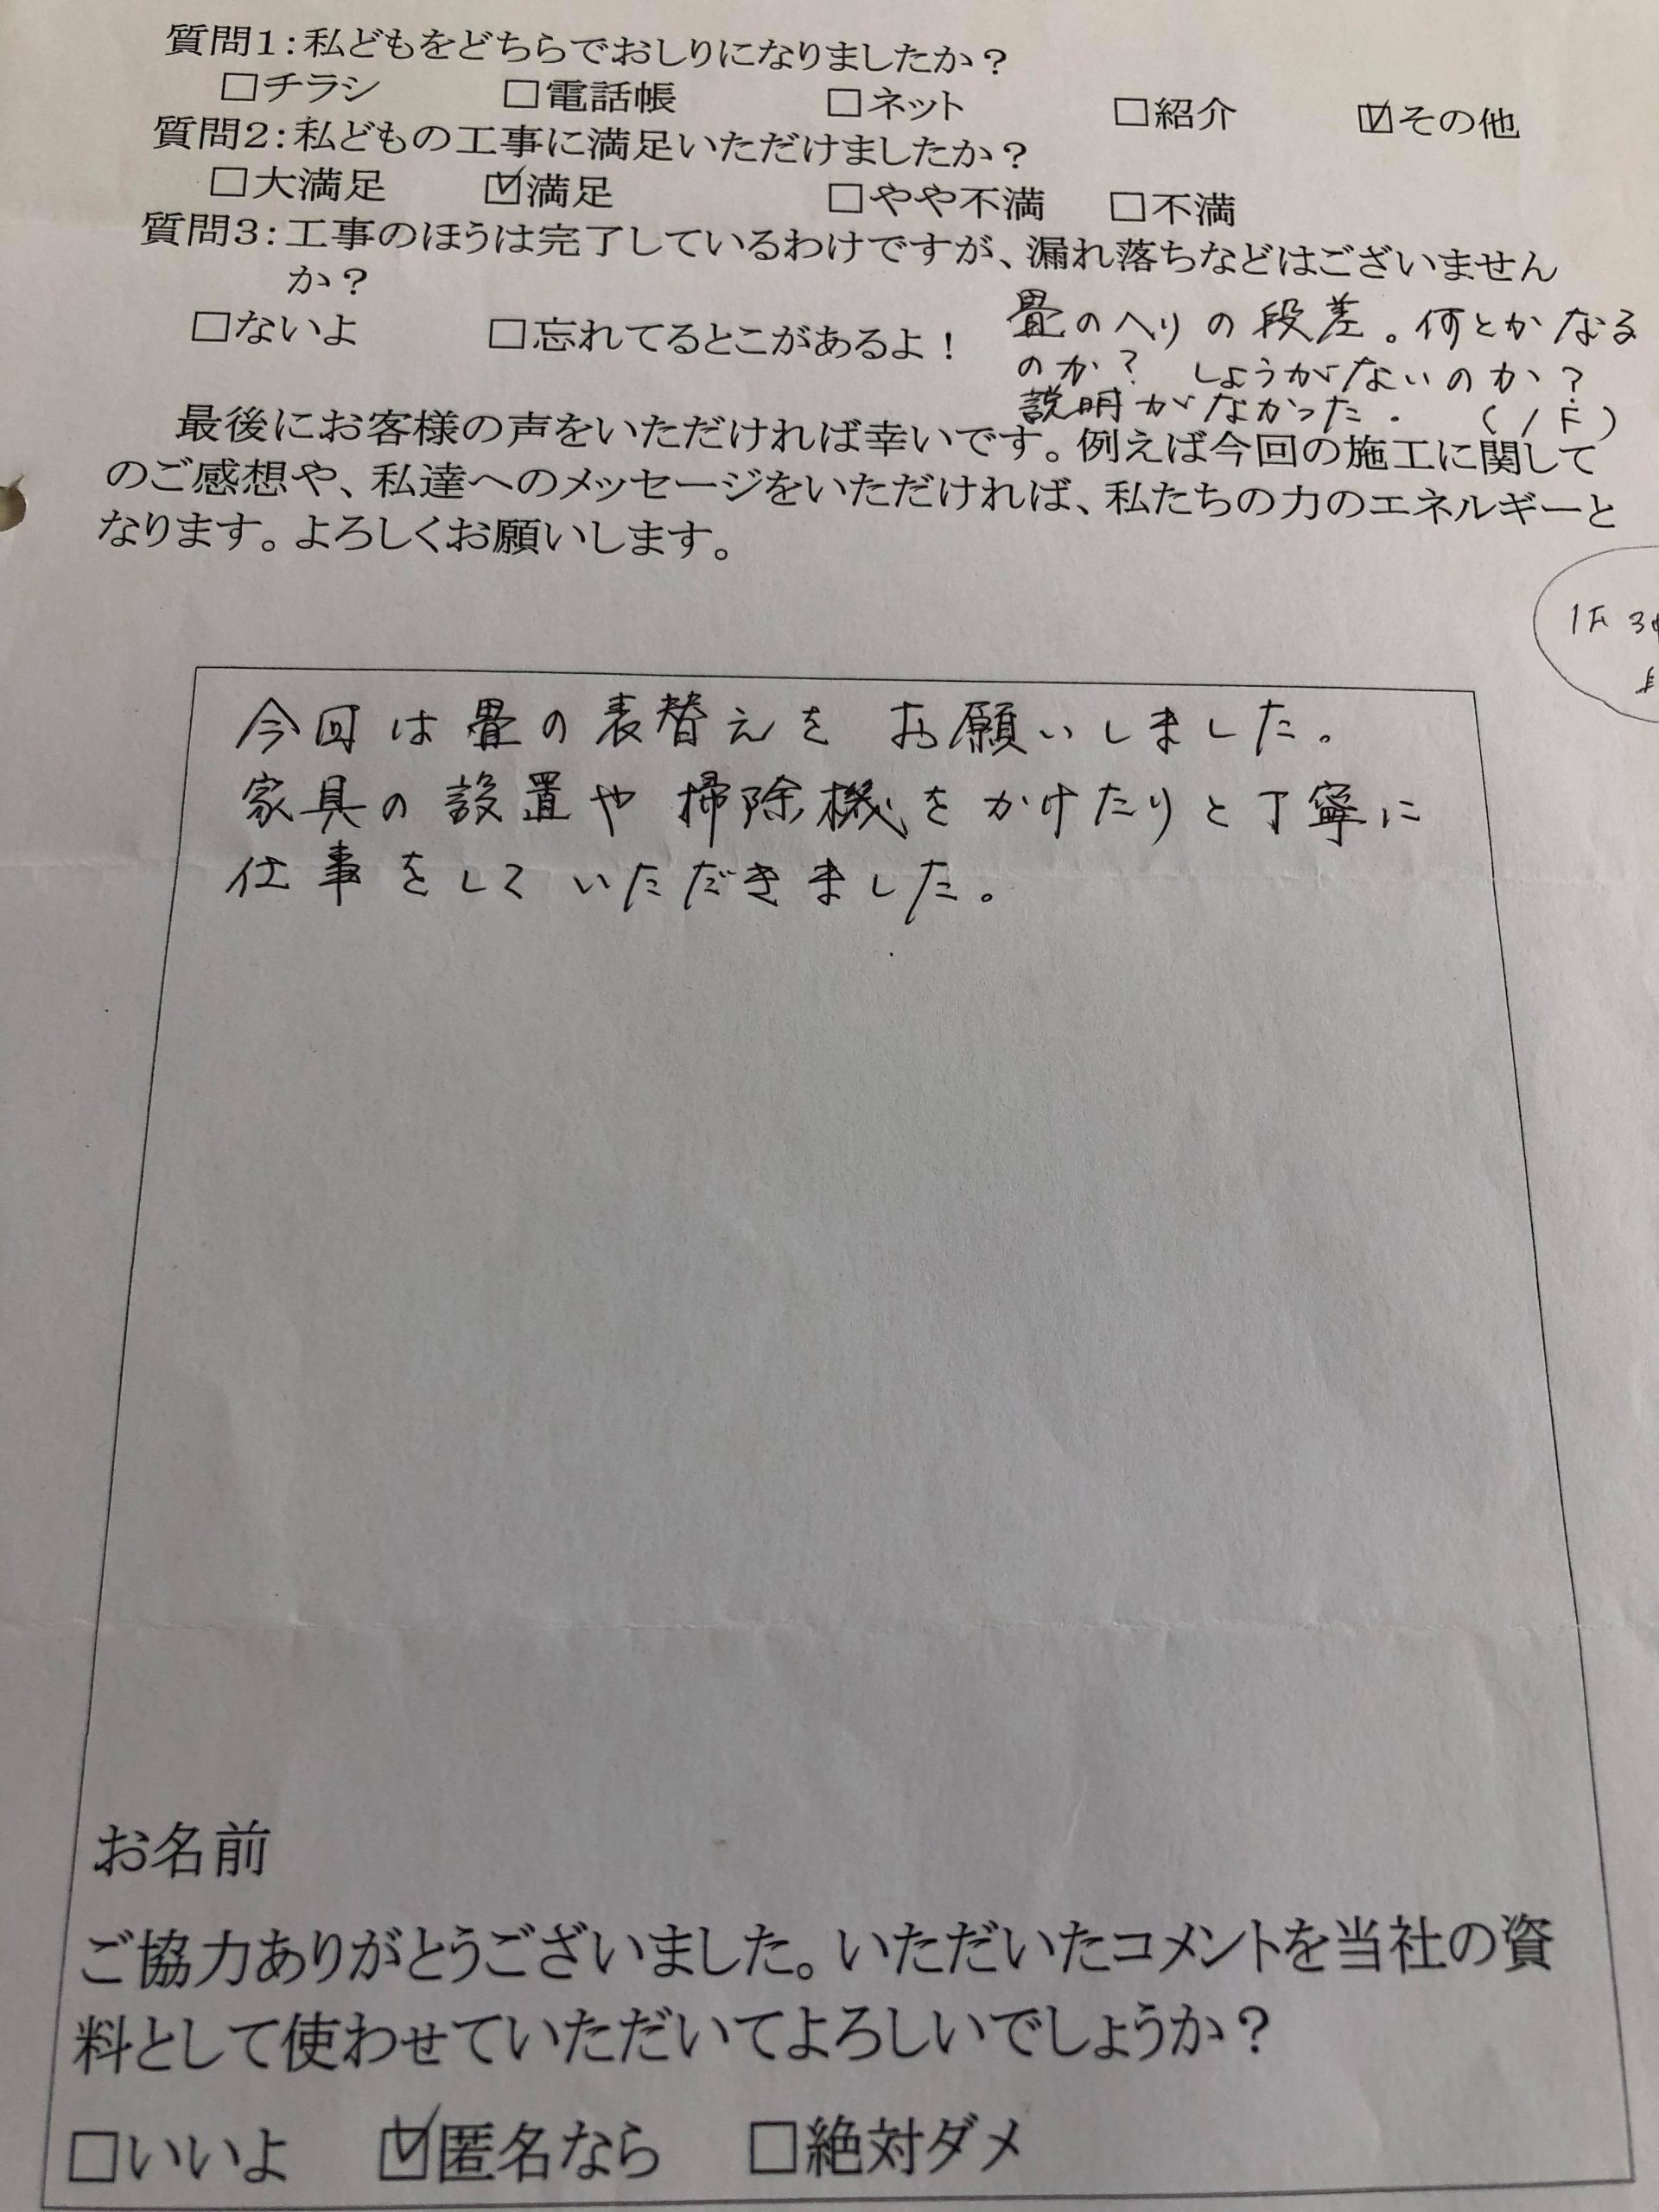 質問1:私どもをどちらでおしりになりましたか?
□チラシ □電話帳 □ネット □紹介 ☑その他
質問2:私どもの工事に満足いただけましたか?
□大満足 ☑満足 □やや不満 □不満
質問3:工事のほうは完了しているわけですが、漏れ落ちなどはございません
か?
□ないよ □忘れてるとこがあるよ!
畳のヘリの段差。何とかなる
のか? しょうがないのか?
説明がなかった. (1F)
最後にお客様の声をいただければ幸いです。例えば今回の施工に関して
のご感想や、私達へのメッセージをいただければ、私たちの力のエネルギーと
なります。よろしくお願いします。
1F 3
今回は畳の表替えを お願いしました。
家具の設置や掃除機をかけたりと丁寧に
仕事をして いただきました。
お名前
ご協力ありがとうございました。いただいたコメントを当社の資
料として使わせていただいてよろしいでしょうか?
□いいよ ☑匿名なら □絶対ダメ